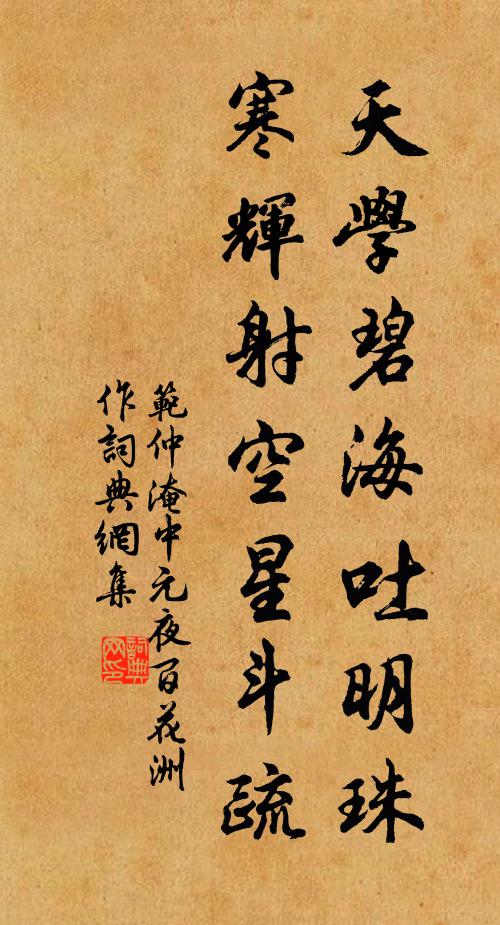 天學碧海吐明珠
寒輝射空星斗疏
範仲淹中元夜百花洲
作詞典網集
詞典
网印